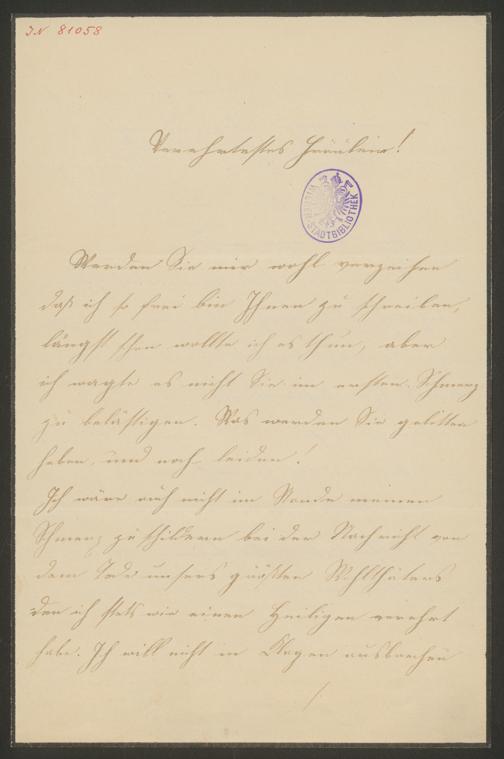 JN 81058
Verehrtestes Fräulein!
WIENER STADTBIBLIOTHEK
Werden Sie mir wohl verzeihen
daß ich so frei bin Ihnen zu schreiben,
längst schon wollte ich es thun, aber
ich wagte es nicht Sie im ersten Schmerz
zu belästigen. Was werden Sie gelitten
haben, und noch leiden!
Ich wäre auch nicht im Stande meinen
Schmerz zu schildern bei der Nachricht von
dem Tode unsers größten Wohlthäters
den ich stets wie einen Heiligen verehrt
habe. Ich will nicht in Klagen ausbrechen